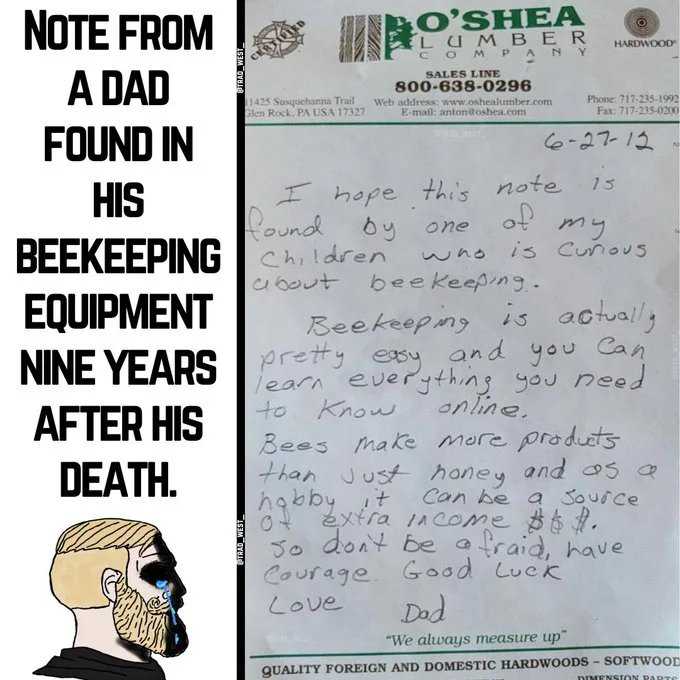 NOTE FROM
A DAD
FOUND IN
HIS
BEEKEEPING
EQUIPMENT
NINE YEARS
AFTER HIS
DEATH.
@TRAD_WEST_
@TRAD_WEST_
O'SHEA
LUMBER
COMPANY
HARDWOOD
SALES LINE
800-638-0296
11425 Susquehanna Trail
Glen Rock, PA USA 17327
Web address: www.oshealumber.com
E-mail: anton@oshea.com
Phone: 717-235-1992
Fax: 717-235-0200
6-27-12
I hope this note is
found by one of my
children who is curious
about beekeeping.
Beekeeping is actually
pretty easy and you can
learn everything you need
to know online.
Bees make more products
than just honey and as a
hobby it can be a source
of extra income $$$.
So don't be afraid, have
courage. Good Luck
Love Dad
"We always measure up"
QUALITY FOREIGN AND DOMESTIC HARDWOODS - SOFTWOOD
DIMENSION PARTS